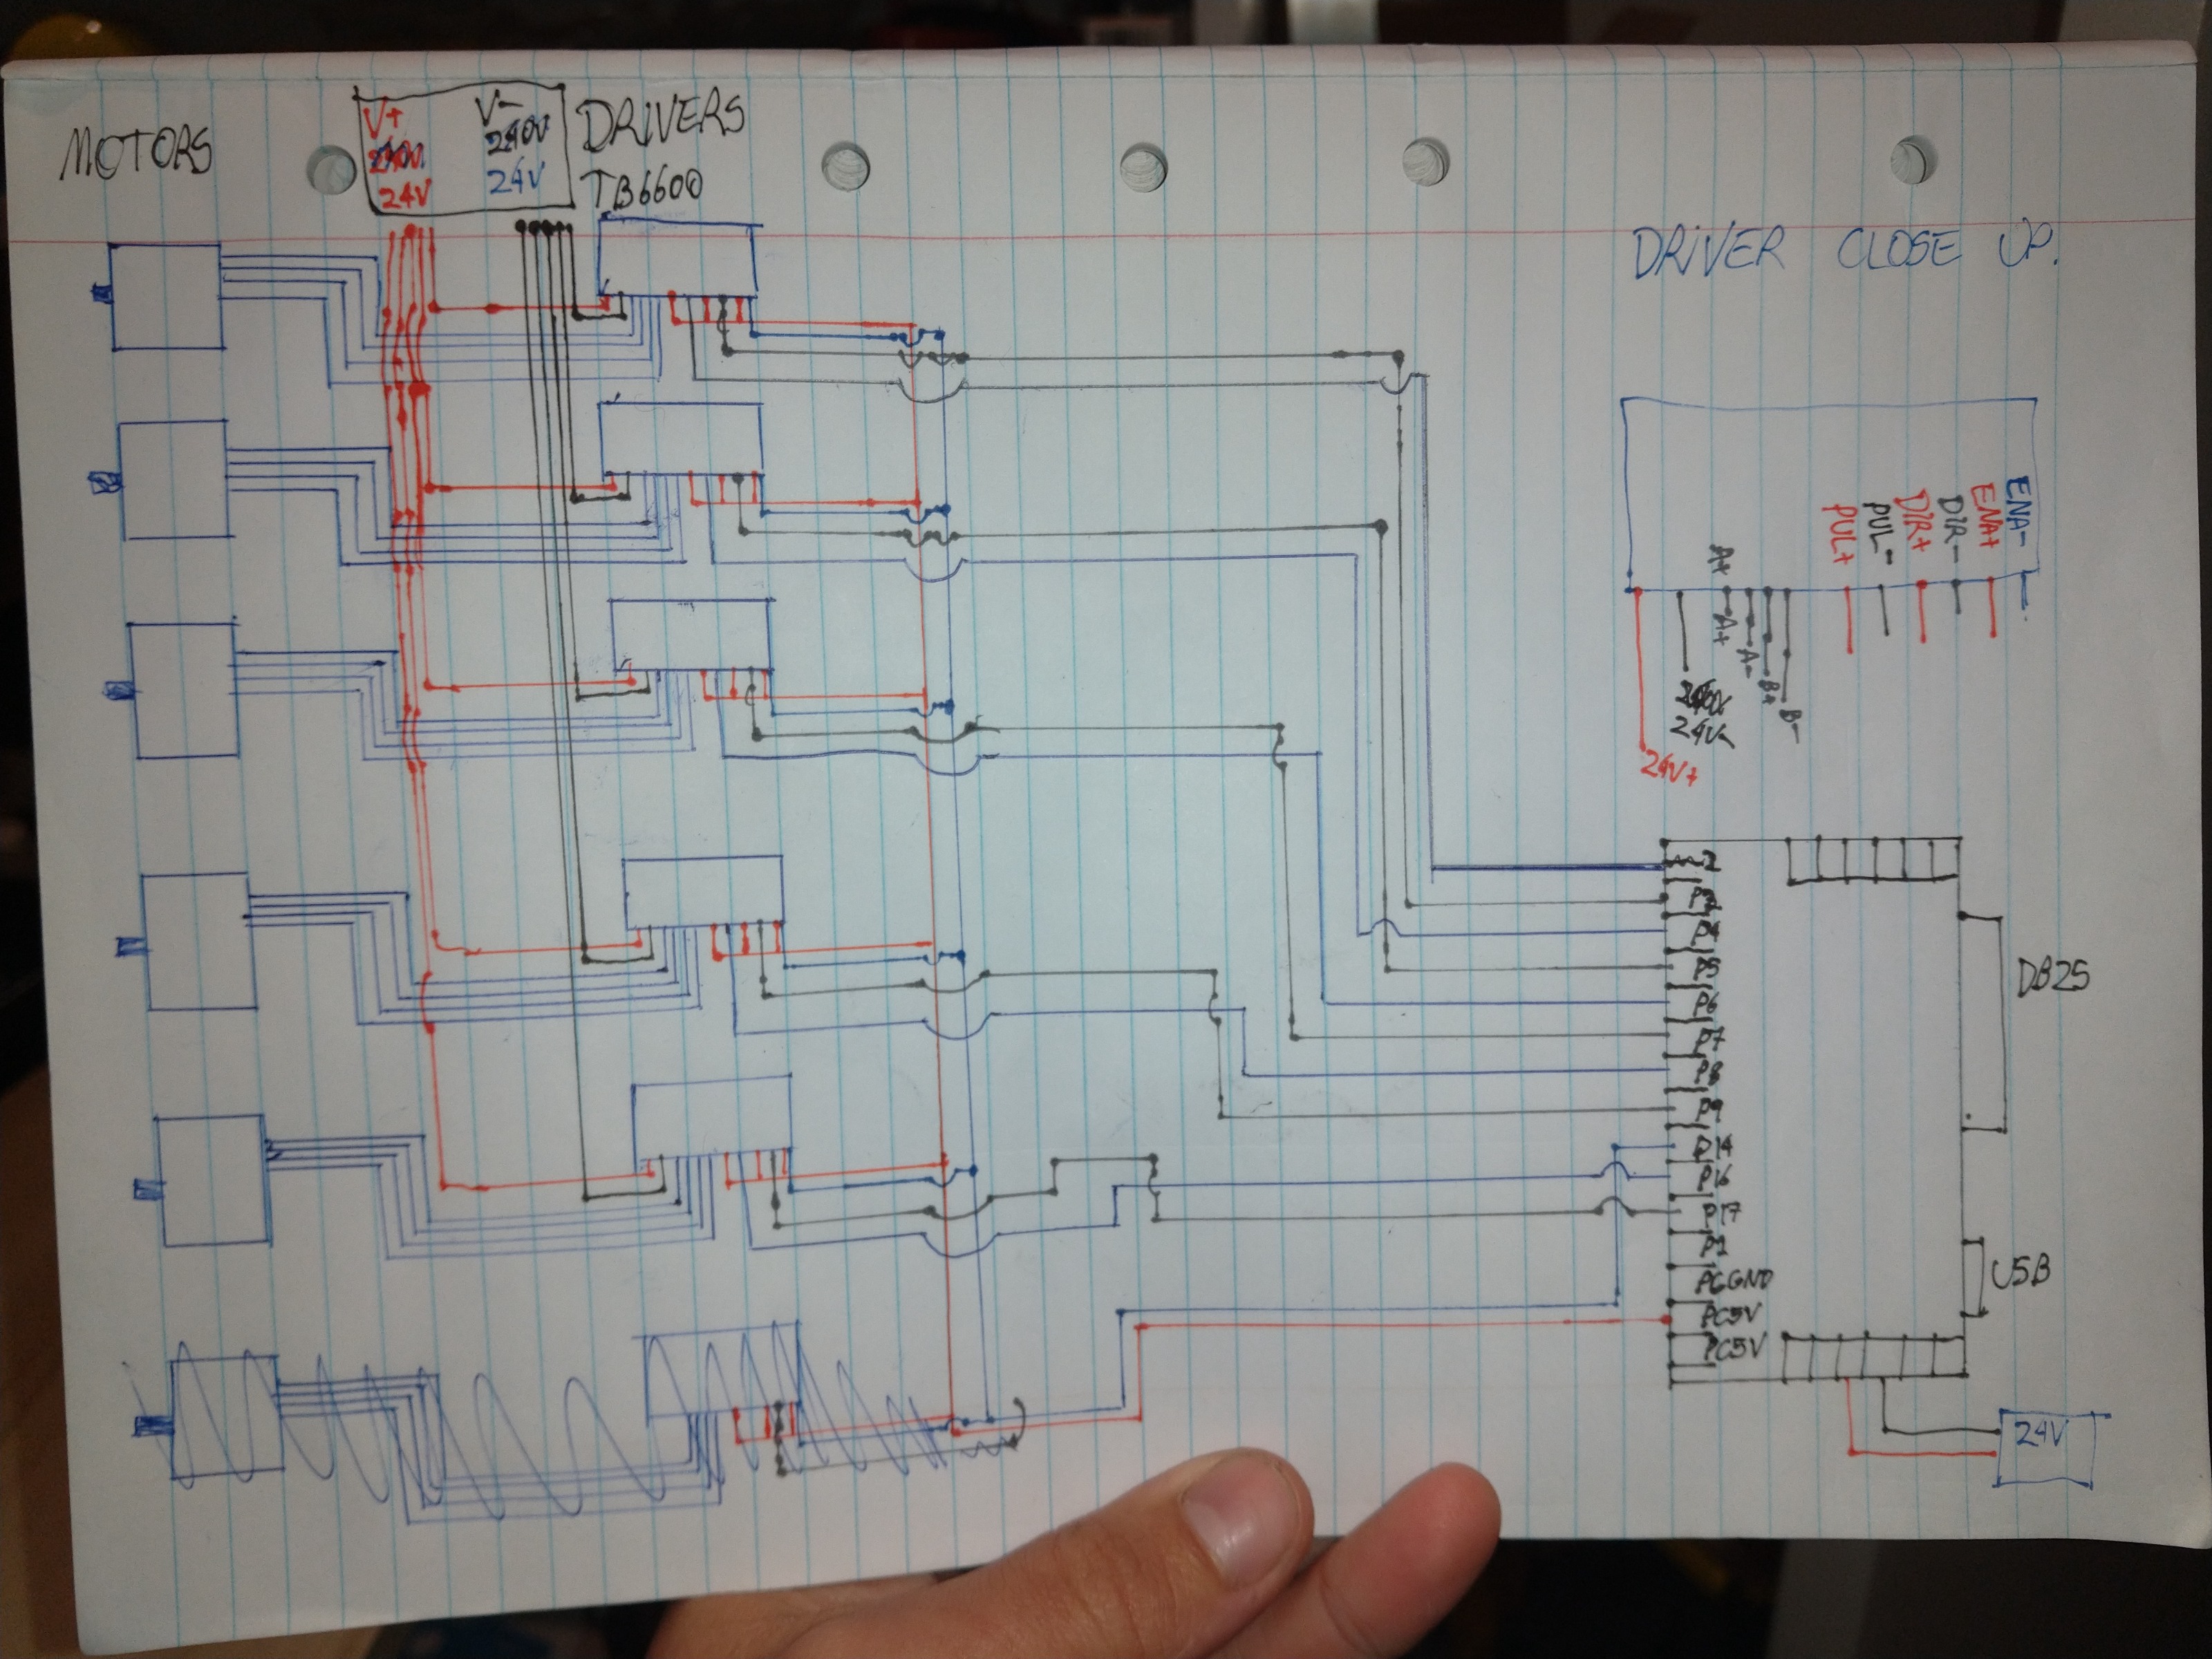 MOTORS
V+
V-
240V
24V
24V
DRIVERS
TB6600
DRIVER CLOSE UP.
PUL+
PUL-
DIR+
DIR-
ENA+
ENA-
A+
A+
A-
B+
B-
24V-
24V+
2
P4
P5
P6
P7
P8
P9
P14
P16
P17
P1
PCGND
PC5V
PC5V
DB25
USB
24V